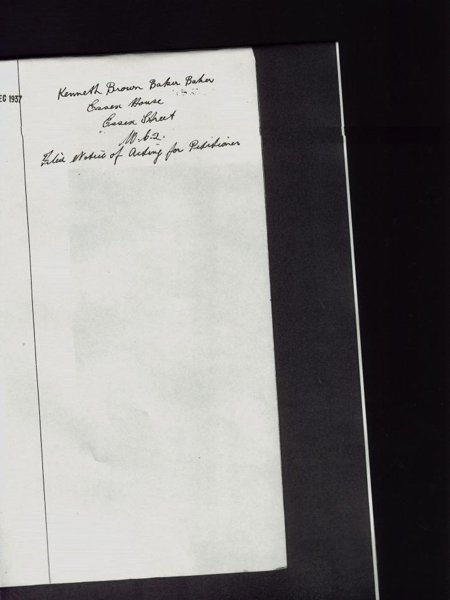 EC 1937
Kenneth Brown Baker Baker
Essex House
Essex Street
W.C.2.
Filed Notice of Acting for Petitioner